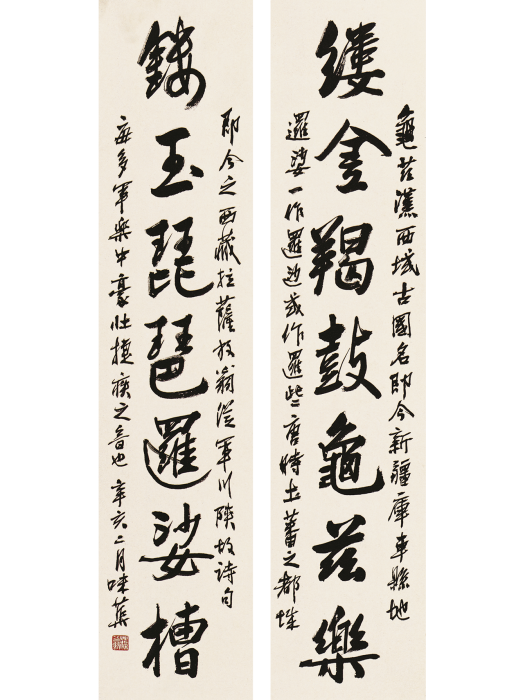 龜茲漢西域古國名即今新疆庫車縣地
縷金羯鼓龜茲樂
邏娑一作邏逤或作邏些唐時土蕃之都城
即今之西藏拉薩放翁從軍川陝故詩句
鏤玉琵琶邏娑槽
每多軍樂中豪壯捷疾之音也 辛亥二月味蕖